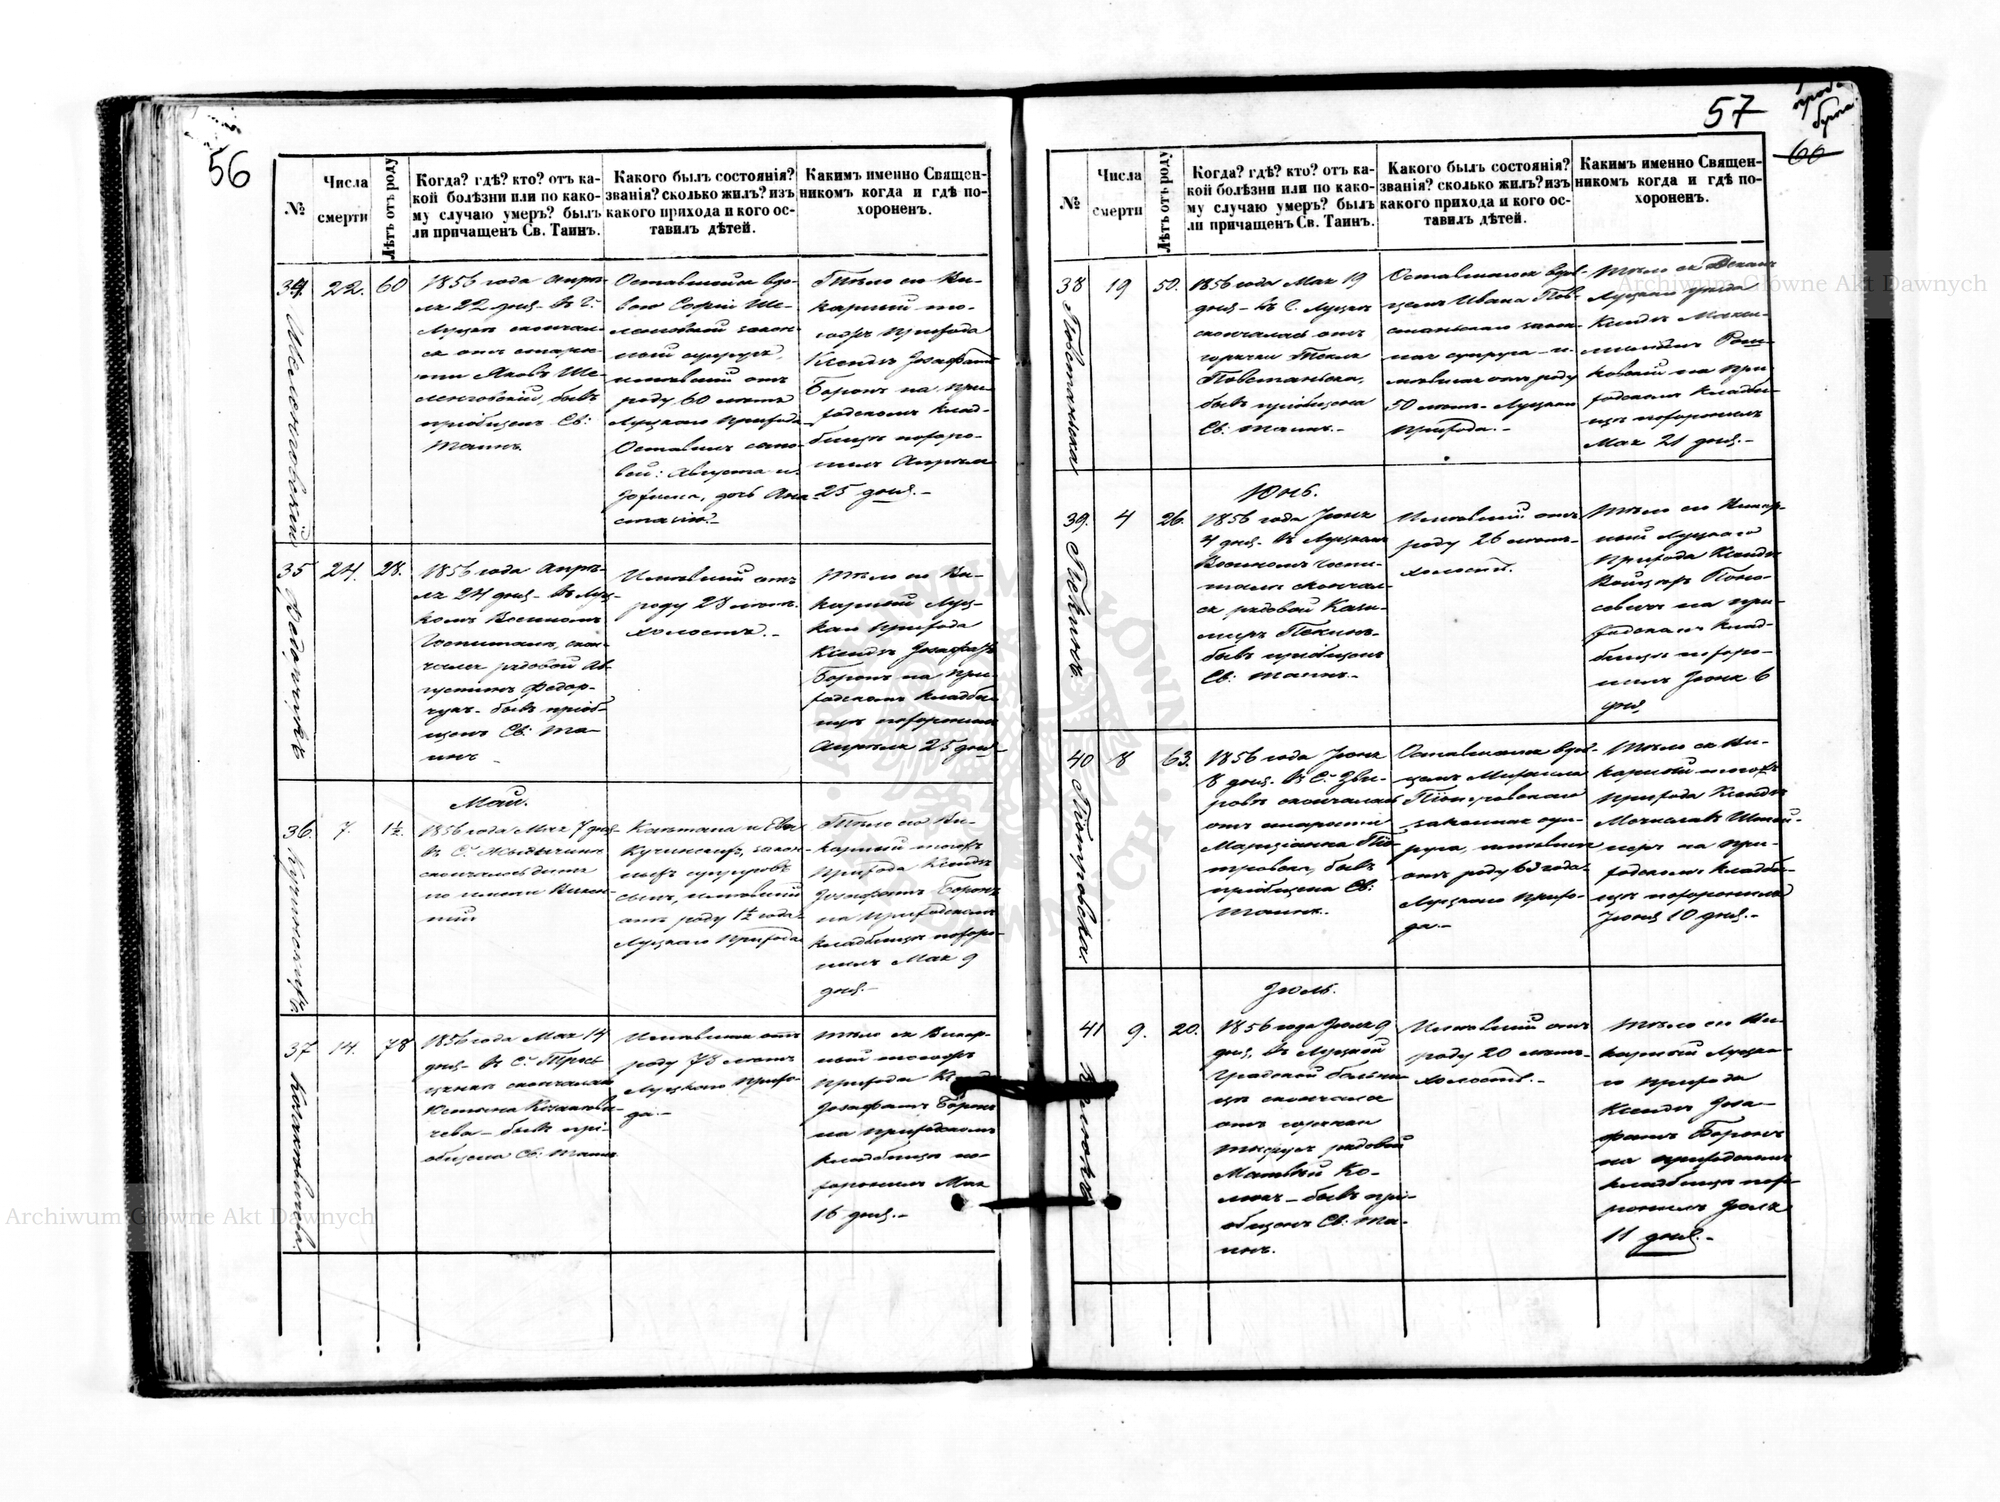 56
№
Числа
смерти
Лѣтъ отъ роду
Когда? гдѣ? кто? отъ ка-
кой болѣзни или по како-
му случаю умеръ? былъ
ли причащенъ Св. Таинъ.
Какого былъ состоянія?
званія? сколько жилъ? изъ
какого прихода и кого ос-
тавилъ дѣтей.
Каким именно Священ-
никомъ когда и гдѣ по-
хороненъ.
34.
22.
60
1856 года Апрѣ-
ля 22 дня въ С.
скончал-
ся отъ старо-
сти Яковъ Ше-
ленговскій, бывъ
пріобщенъ Св:
Таинъ.
Оставшійся вдо-
вою Софіи Ше-
закон-
ный супругъ,
имѣвшій отъ
роду 60 лѣтъ
Луцкаго Прихода
Оставилъ сыно-
вей: Августа и
дочь Ана-
стасію.
Тѣло его Ви-
карный то-
гожъ Прихода
Ксендзъ Іозафатъ
Боронъ на при-
ходскомъ клад-
бищѣ похоро-
нилъ Апрѣля
25 дня.-
35
24.
28.
1856 года Апрѣ-
ля 24 дня въ Луц-
комъ Военномъ
Госпиталѣ скон-
чался рядовой Ав-
густинъ Федор-
чукъ бывъ пріоб-
щенъ Св: Та-
инъ
Имѣвшій отъ
роду 28 лѣтъ.
холостъ.-
Тѣло его Ви-
карный Луц-
каго Прихода
Ксендзъ Іозафатъ
Боронъ на при-
ходскомъ кладби-
щѣ похоронилъ
Апрѣля 25 дня
Май.
36.
7.
1½
1856 года Мая 7 дня
въ С. Жидычинѣ
скончалось дитя
по имени Викен-
тій
Каетана и Евы
Кучинскихъ, закон-
ныхъ супруговъ
сынъ, имѣвшій
отъ роду 1½ года
Луцкаго Прихода
Тѣло его Ви-
карный тогожъ
Прихода Ксендзъ
Іозафатъ Боронъ
на Приходскомъ
кладбищѣ похоро-
нилъ Мая 9
дня.-
37
14.
78
1856 года Мая 14
дня въ С.
скончалась
Юстына
бывъ прі-
общена Св. Таинъ
Имѣвшая отъ
роду 78 лѣтъ
Луцкаго Прихо-
да.-
Тѣло ея Викар-
ный тогожъ
Прихода
Іозафатъ Боронъ
на приходскомъ
кладбищѣ по-
хоронилъ Мая
16 дня.-
57
66
№
Числа
смерти
Лѣтъ отъ роду
Когда? гдѣ? кто? отъ ка-
кой болѣзни или по како-
му случаю умеръ? былъ
ли причащенъ Св. Таинъ.
Какого былъ состоянія?
званія? сколько жилъ? изъ
какого прихода и кого ос-
тавилъ дѣтей.
Каким именно Священ-
никомъ когда и гдѣ по-
хороненъ.
38
19
50.
1856 года Мая 19
дня въ Г. Луцкѣ
скончалась отъ
горячки Текля
Повстаньска,
бывъ пріобщена
Св: Таинъ.-
Оставшагося вдов-
цемъ Ивана Пов-
станьскаго закон-
ная супруга и-
мѣвшая отъ роду
50 лѣтъ Луцкаго
Прихода.-
Тѣло ея Деканъ
Луцкаго уѣзда
Ксендзъ Макси-
миліанъ
на при-
ходскомъ кладби-
щѣ похоронилъ
Мая 21 дня.-
Юнь.
39.
4
26.
1856 года Іюня
4 дня въ Луцкомъ
Военномъ госпи-
талѣ скончал-
ся рядовой Кази-
миръ Пекинъ
бывъ пріобщенъ
Св: Таинъ.-
Имѣвшій отъ
роду 26 лѣтъ
холостъ.
Тѣло его Викар-
ный Луцкаго
Прихода Ксендзъ
на при-
ходскомъ клад-
бищѣ похоро-
нилъ Іюня 6
дня
40
8
63.
1856 года Іюня
8 дня въ С.
скончалась
отъ старости
Маріанна Піо-
тровска, бывъ
пріобщена Св:
Таинъ.
Оставшагося вдов-
цемъ Михаила
Піотровскаго
законная суп-
руга, имѣвшая
отъ роду 63 года
Луцкаго Прихо-
да.-
Тѣло ея Ви-
карный тогожъ
Прихода Ксендзъ
на при-
ходскомъ кладби-
щѣ похоронилъ
Іюня 10 дня.-
Іюль.
41
9.
20.
1856 года Іюля 9
дня, въ Луцкой
Градской больни-
цѣ скончался
отъ горячки
рядовой
Матвѣй Ко-
бывъ прі-
общенъ Св: Та-
инъ.
Имѣвшій отъ
роду 20 лѣтъ
холостъ.-
Тѣло его Ви-
карный Луцка-
го Прихода
Ксендзъ Іоза-
фатъ Боронъ
на приходскомъ
кладбищѣ похо-
ронилъ Іюля
11 дня.-
Archiwum Główne Akt Dawnych
Archiwum Główne Akt Dawnych